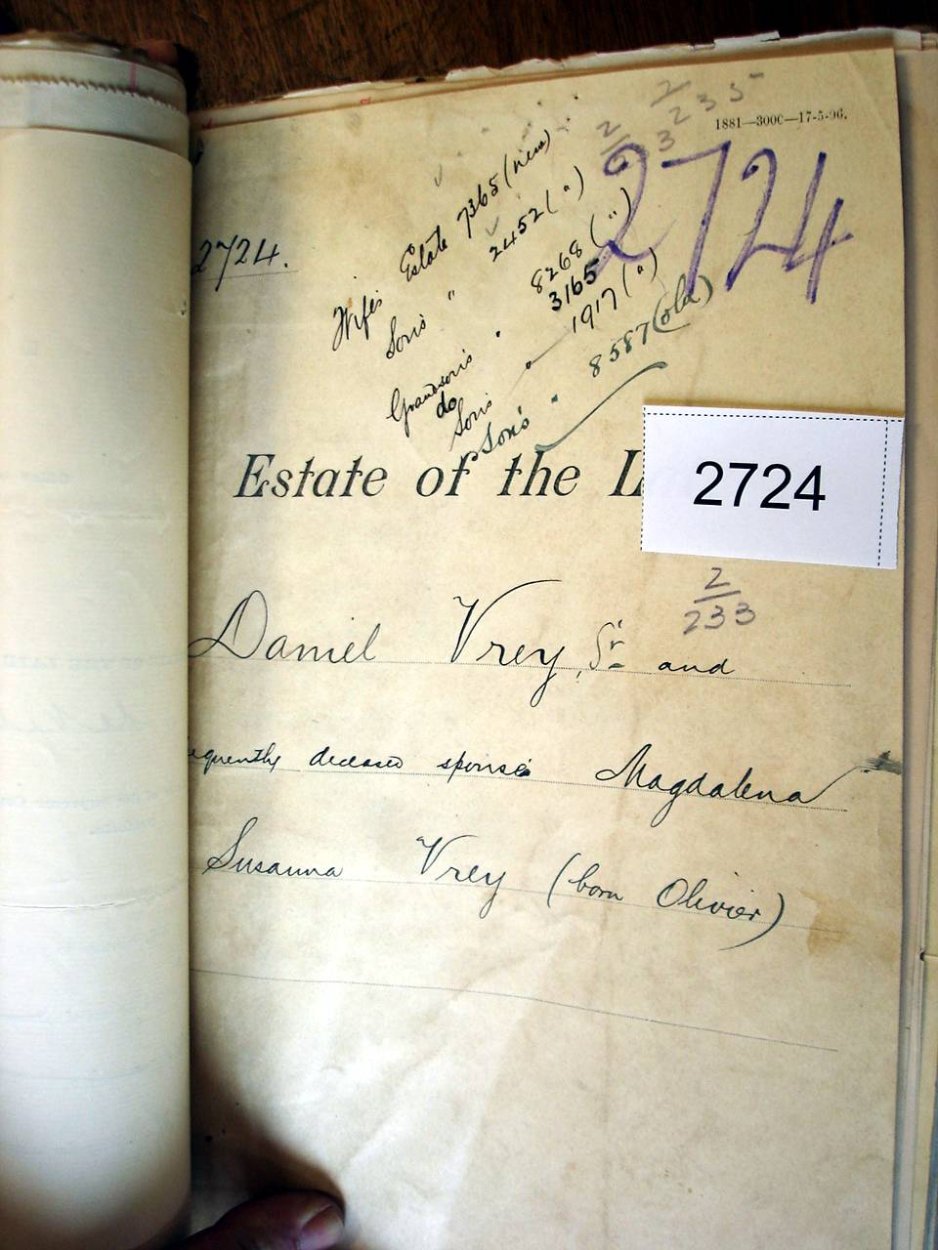 1881—3000—17-5-96.
2
235
2
3
2724
2724.
Wife's Estate 7365 (new)
Son's " 2452 (")
Grandson's " 8268 (")
do 3165
Son's " 1917 (")
Son's " 8587 (old)
Estate of the L
2724
2
233
Daniel Vrey, Sr and
equently deceased spouse Magdalena
Susanna Vrey (born Olivier)